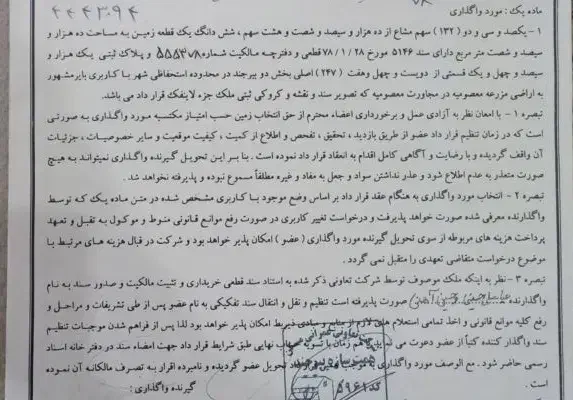 ۴۴۳۰۹۴
ماده یک : مورد واگذاری
۱ - یکصد و سی و دو (۱۳۲) سهم مشاع از ده هزار و سیصد و شصت و هشت سهم ، شش دانگ یک قطعه زمین به مساحت ده هزار و
سیصد و شصت متر مربع دارای سند ۵۱۴۶ مورخ ۷۸/۱/۲۸ قطعی و دفترچه مالکیت شماره ۵۵۵۴۰۷۸ و پلاک ثبتی یک هزار و
سیصد و چهل و یک فرعی از دویست و چهل وهفت (۲۴۷) اصلی بخش دو بیرجند در محدوده استحفاظی شهر با کاربری بایر مشهور
به اراضی مزرعه معصومیه در مجاورت معصومیه که تصویر سند و نقشه و کروکی ثبتی ملک جزء لاینفک قرار داد می باشد.
تبصره ۱ - با امعان نظر به آزادی عمل و برخورداری اعضاء محترم از حق انتخاب زمین حسب امتیاز مکتسبه مورد واگذاری به صورتی
است که در زمان تنظیم قرار داد عضو از طریق بازدید ، تحقیق ، تفحص و اطلاع از کمیت ، کیفیت موقعیت و سایر خصوصیات ، جزئیات
آن واقف گردیده و با رضایت و آگاهی کامل اقدام به انعقاد قرار داد نموده است . بنا بر این تحویل گیرنده واگذاری نمیتواند به هیچ
صورت متعذر به عدم اطلاع شود و عذر نداشتن سواد و جهل به مفاد و غیره مطلقاً مسموع نبوده و پذیرفته نخواهد شد .
تبصره ۲ - انتخاب مورد واگذاری به هنگام عقد قرار داد بر اساس وضع موجود با کاربری مشخص شده در متن ماده یک که توسط
واگذارنده معرفی شده صورت خواهد پذیرفت و درخواست تغییر کاربری در صورت رفع موانع قانونی منوط و موکول به تقبل و تعهد
پرداخت هزینه های مربوطه از سوی تحویل گیرنده مورد واگذاری (عضو) امکان پذیر خواهد بود و شرکت در قبال هزینه های مرتبط با
موضوع درخواست متقاضی تعهدی را متقبل نمی گردد .
تبصره ۳ - نظر به اینکه ملک موصوف توسط شرکت تعاونی ذکر شده به استناد سند قطعی خریداری و تثبیت مالکیت و صدور سند به نام
واگذارنده صورت پذیرفته است تنظیم و نقل و انتقال سند تفکیکی به نام عضو پس از طی تشریفات و مراحل و
رفع کلیه موانع قانونی و اخذ تمامی استعلام های لازم از مبادی ذیربط امکان پذیر خواهد بود لذا پس از فراهم شدن موجبات تنظیم
سند واگذار کننده کتباً از عضو دعوت می نماید زمان با تسویه حساب نهایی طبق شرایط قرار داد جهت امضاء سند در دفتر خانه اسناد
رسمی حاضر شود . مع الوصف مورد واگذاری به موجب تحویل عضو گردیده و نامبرده اقرار به تصرف مالکانه آن نموده
است . گیرنده واگذاری :
تعاونی
بیرجند
کد ۵۹۶۱